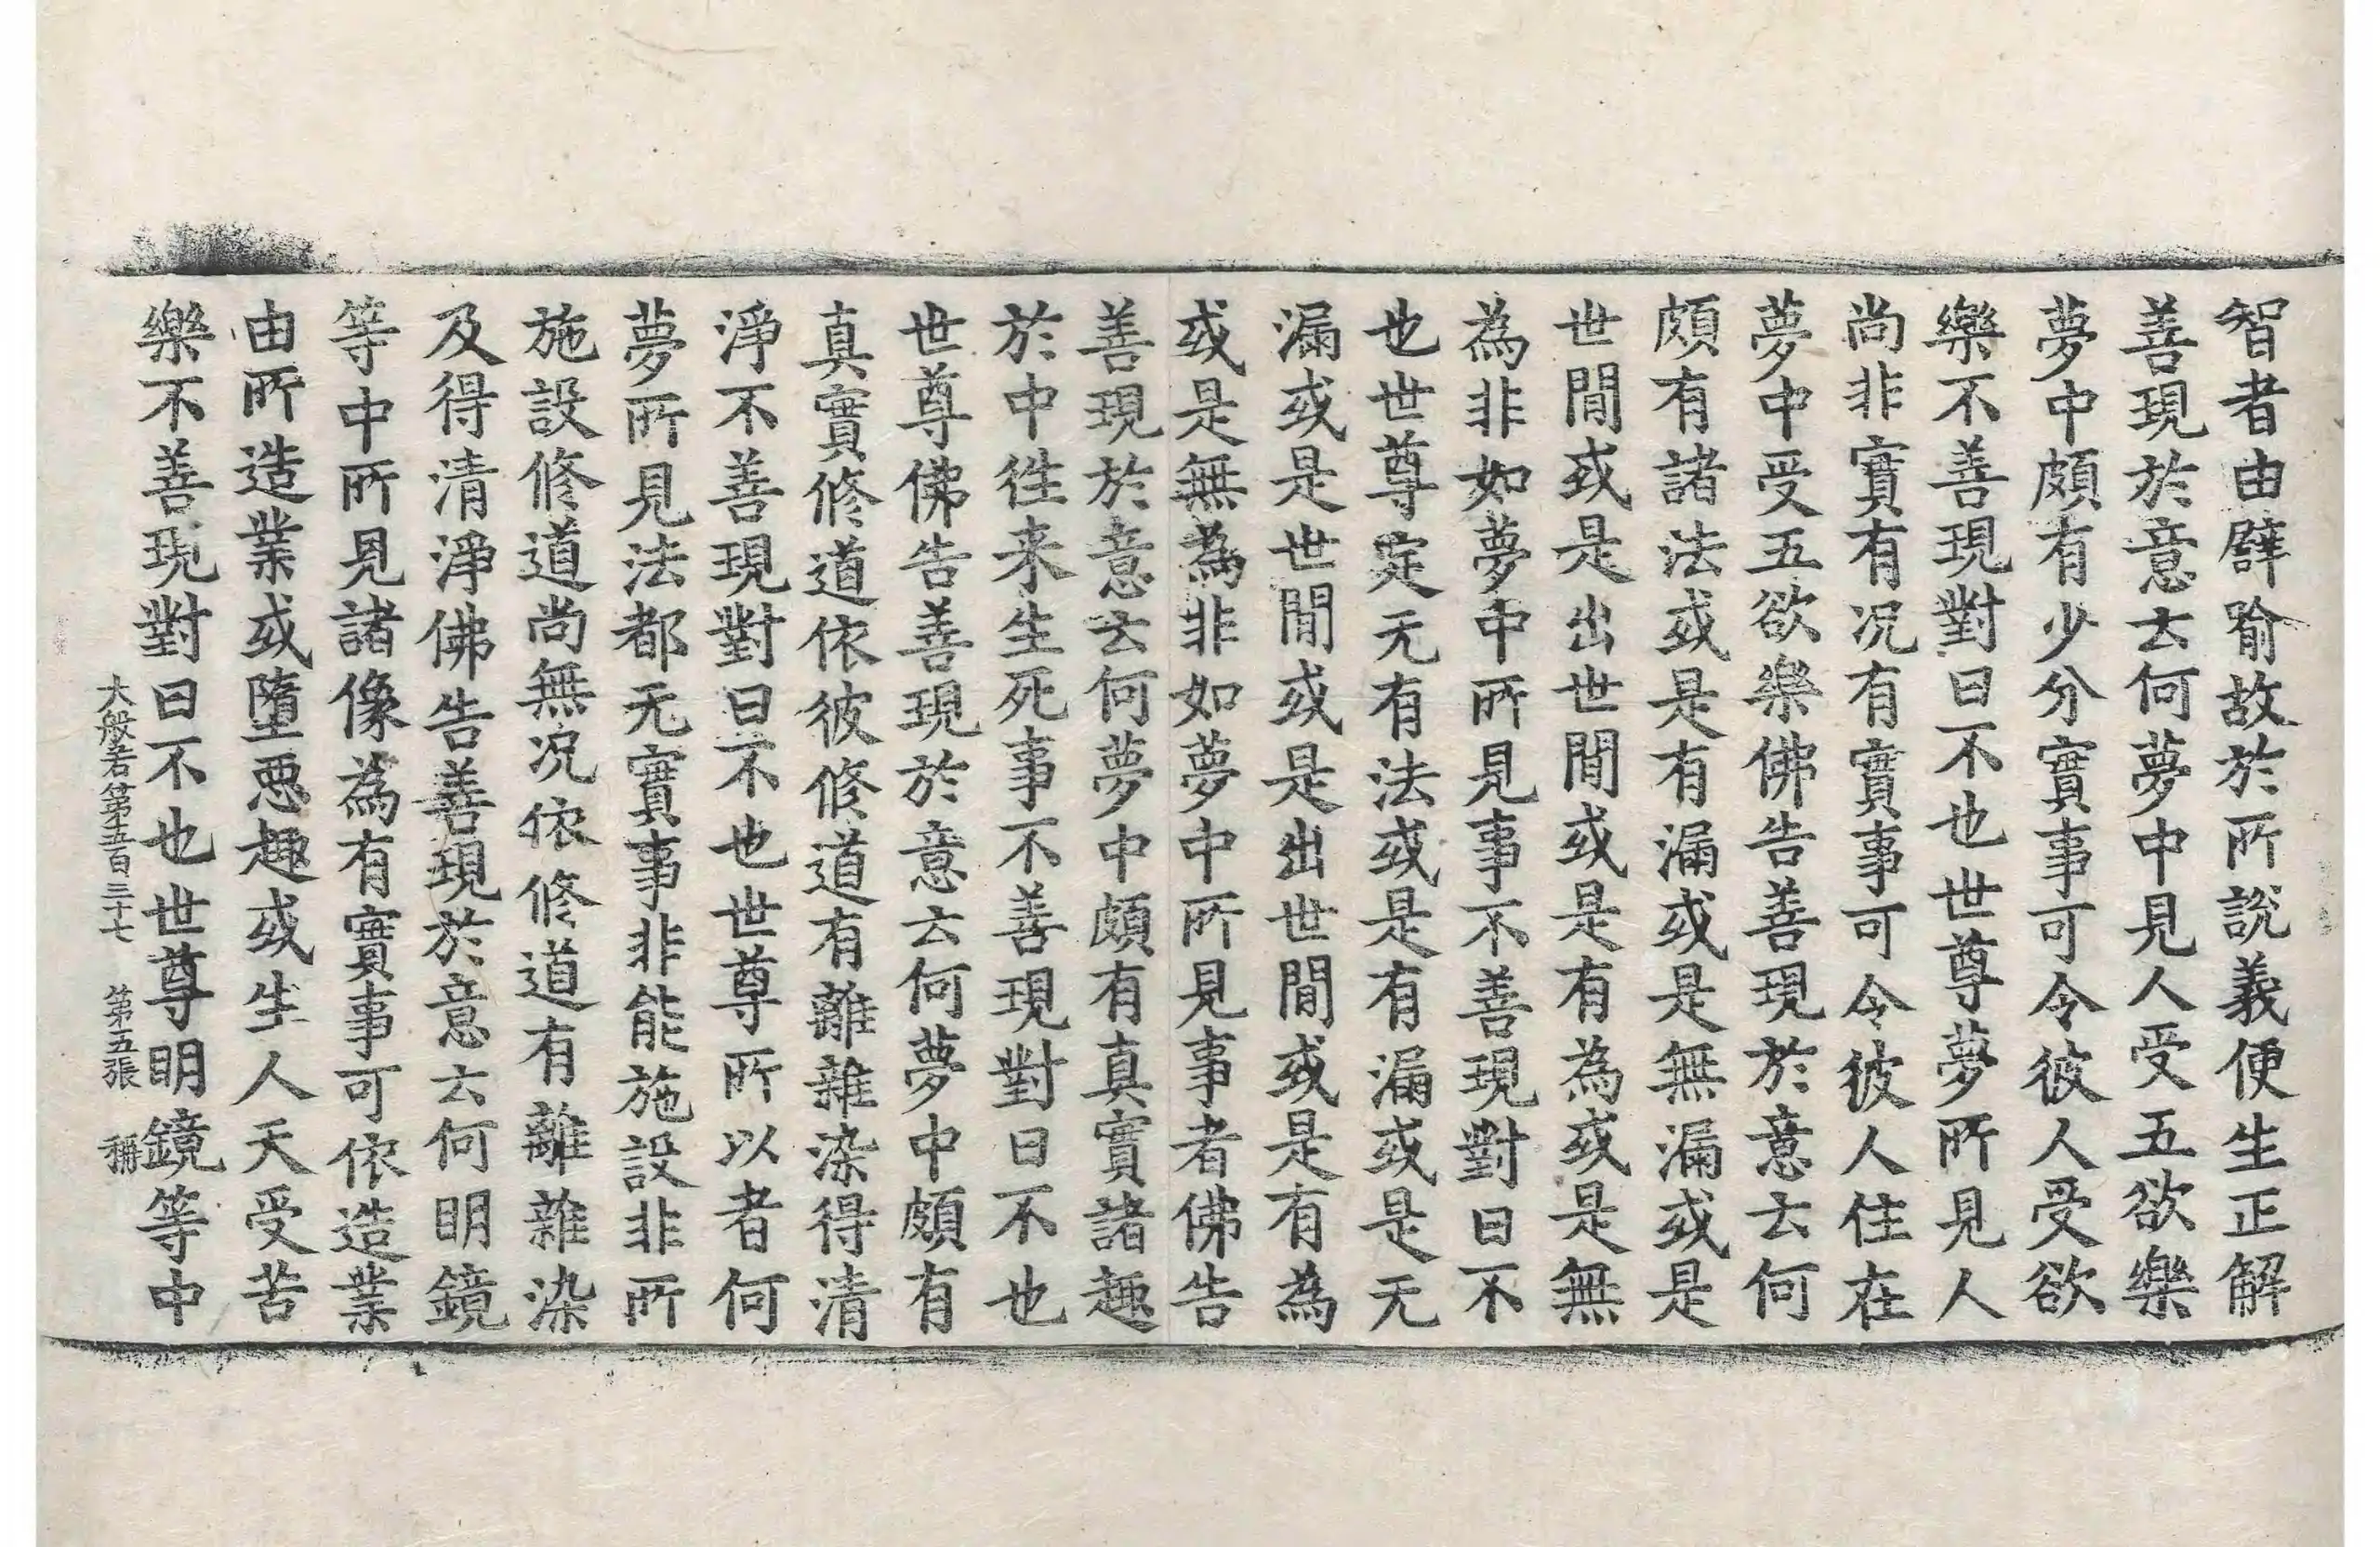 智者由譬喻故於所說義便生正解
善現於意云何夢中見人受五欲樂
夢中頗有少分實事可令彼人受欲
樂不善現對曰不也世尊夢所見人
尚非實有況有實事可令彼人住在
夢中受五欲樂佛告善現於意云何
頗有諸法或是有漏或是無漏或是
世間或是出世間或是有為或是無
為非如夢中所見事不善現對曰不
也世尊定无有法或是有漏或是无
漏或是世間或是出世間或是有為
或是無為非如夢中所見事者佛告
善現於意云何夢中頗有真實諸趣
於中徃来生死事不善現對曰不也
世尊佛告善現於意云何夢中頗有
真實修道依彼修道有離雜染得清
淨不善現對曰不也世尊所以者何
夢所見法都无實事非能施設非所
施設修道尚無況依修道有離雜染
及得清淨佛告善現於意云何明鏡
等中所見諸像為有實事可依造業
由所造業或墮惡趣或生人天受苦
樂不善現對曰不也世尊明鏡等中
大般若第五百三十七 第五張 稱